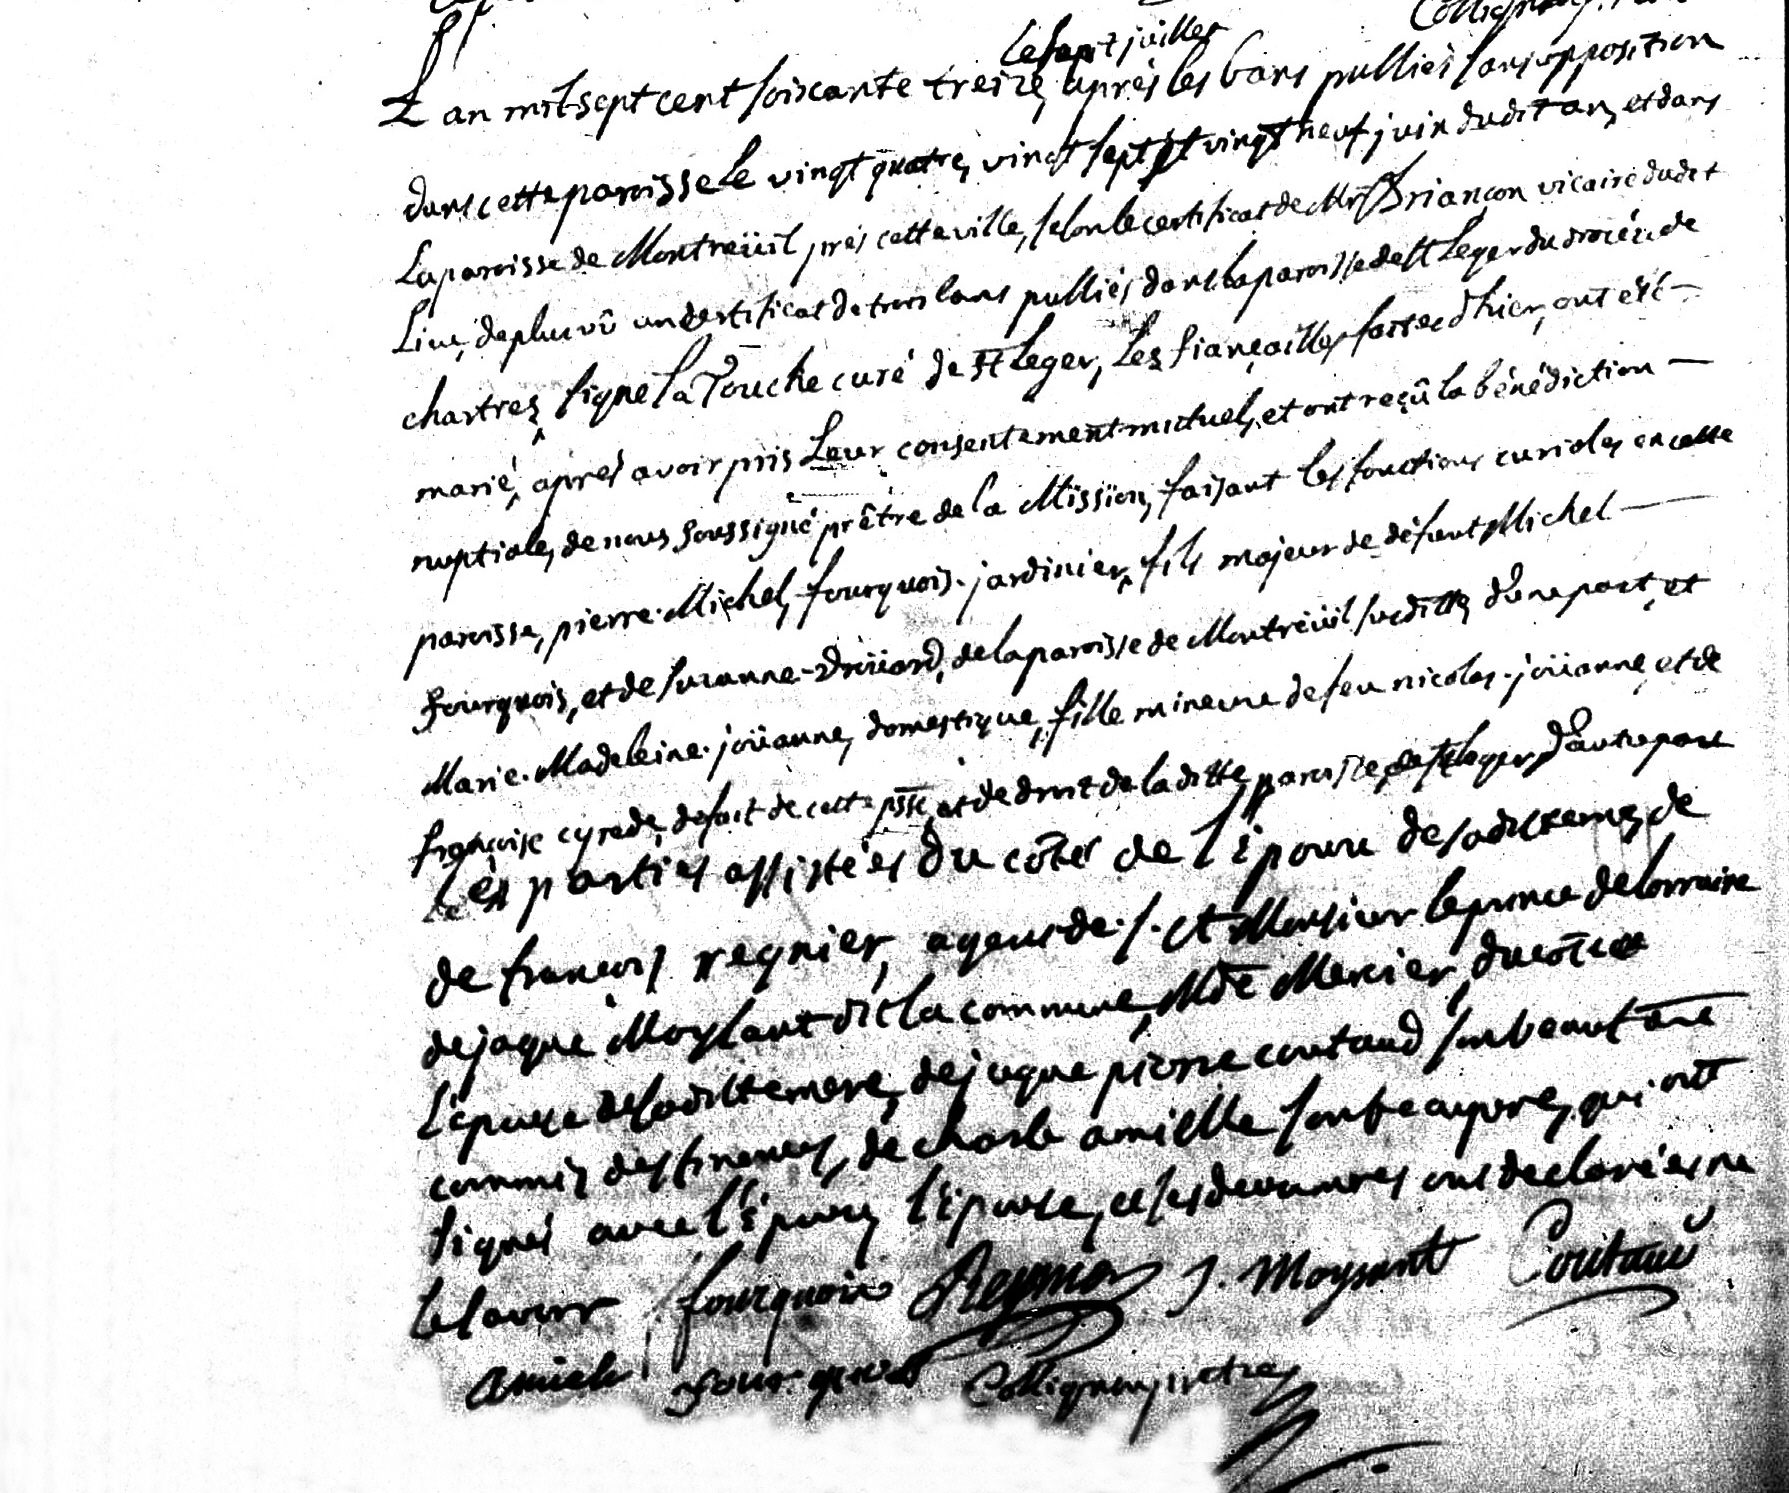 Collignon, prêtre
le sept juillet
L'an mil sept cent soixante treize, après les bans publiés sans opposition
dans cette paroisse le vingt quatre, vingt sept et vingt neuf juin dudit an, et dans
la paroisse de Montreüil près cette ville, selon le certificat de Mr Briançon vicaire dudit
Lieu, de plus vû un certificat de trois bans publiés dans la paroisse de St Leger du diocèse de
chartres, signe la Touche curé de St Leger, les fiançailles faites d'hier, ont été
marié, après avoir pris Leur consentement mutuel, et ont reçû la bénédiction
nuptiale, de nous soussigné prêtre de la Mission, faisant les fonctions curiales en cette
paroisse, pierre-Michel, fourquois. jardinier, fils majeur de défunt Michel
fourquois, et de suzanne-Drüard, de la paroisse de Montreüil susditte, d'une part, et
Marie. Madeleine. joüanne, domestique, fille mineure de feu nicolas. joüanne, et de
françoise cyrede, de fait de cette psse, et de droit de la ditte paroisse de St leger, d'autre part
Les parties assistées du côté de l'époux de sa ditte mere, de
de francois regnier, agent de s. A Monsieur le prince de lorraine
de jaque Moysant dit la commune, Md Mercier, du côté de
l'épouse de sa ditte mere, de jaque pierre coutaud son
commis des finances, de charle amielle son beaupere, qui ont
signés avec l'époux, l'épouse, et les deux meres ont declarées ne
le savoir fourquois Reynier J. Moysant Coutaud
Amiele fourquois Collignon, prêtre